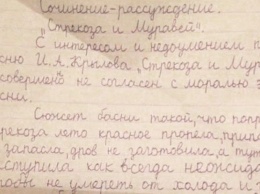 Сочинение-рассуждение.
"Стрекоза и Муравей".
С интересом и недоумением п
сню И.А. Крылова "Стрекоза и Мур
совершенно не согласен с моралью э
сни.
Сюжет басни такой, что попр
рекоза лето красное пропела, припа
запасла, дров не заготовила, а тут
ступила как всегда неожида
обы не умереть от холода и